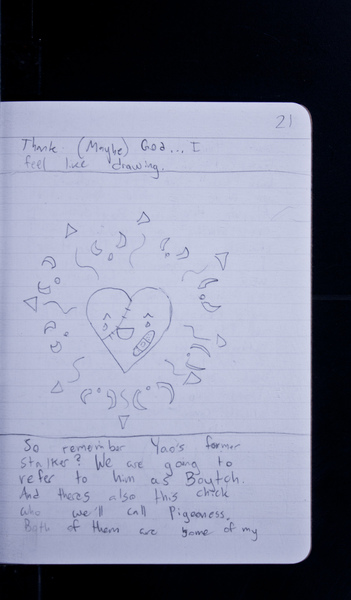 21
Thank (Maybe) God... I
feel like drawing.
So remember Yao's former
stalker? We are going to
refer to him as Boytch.
And theres also this chick
who we'll call Pigeoness.
Both of them are some of my